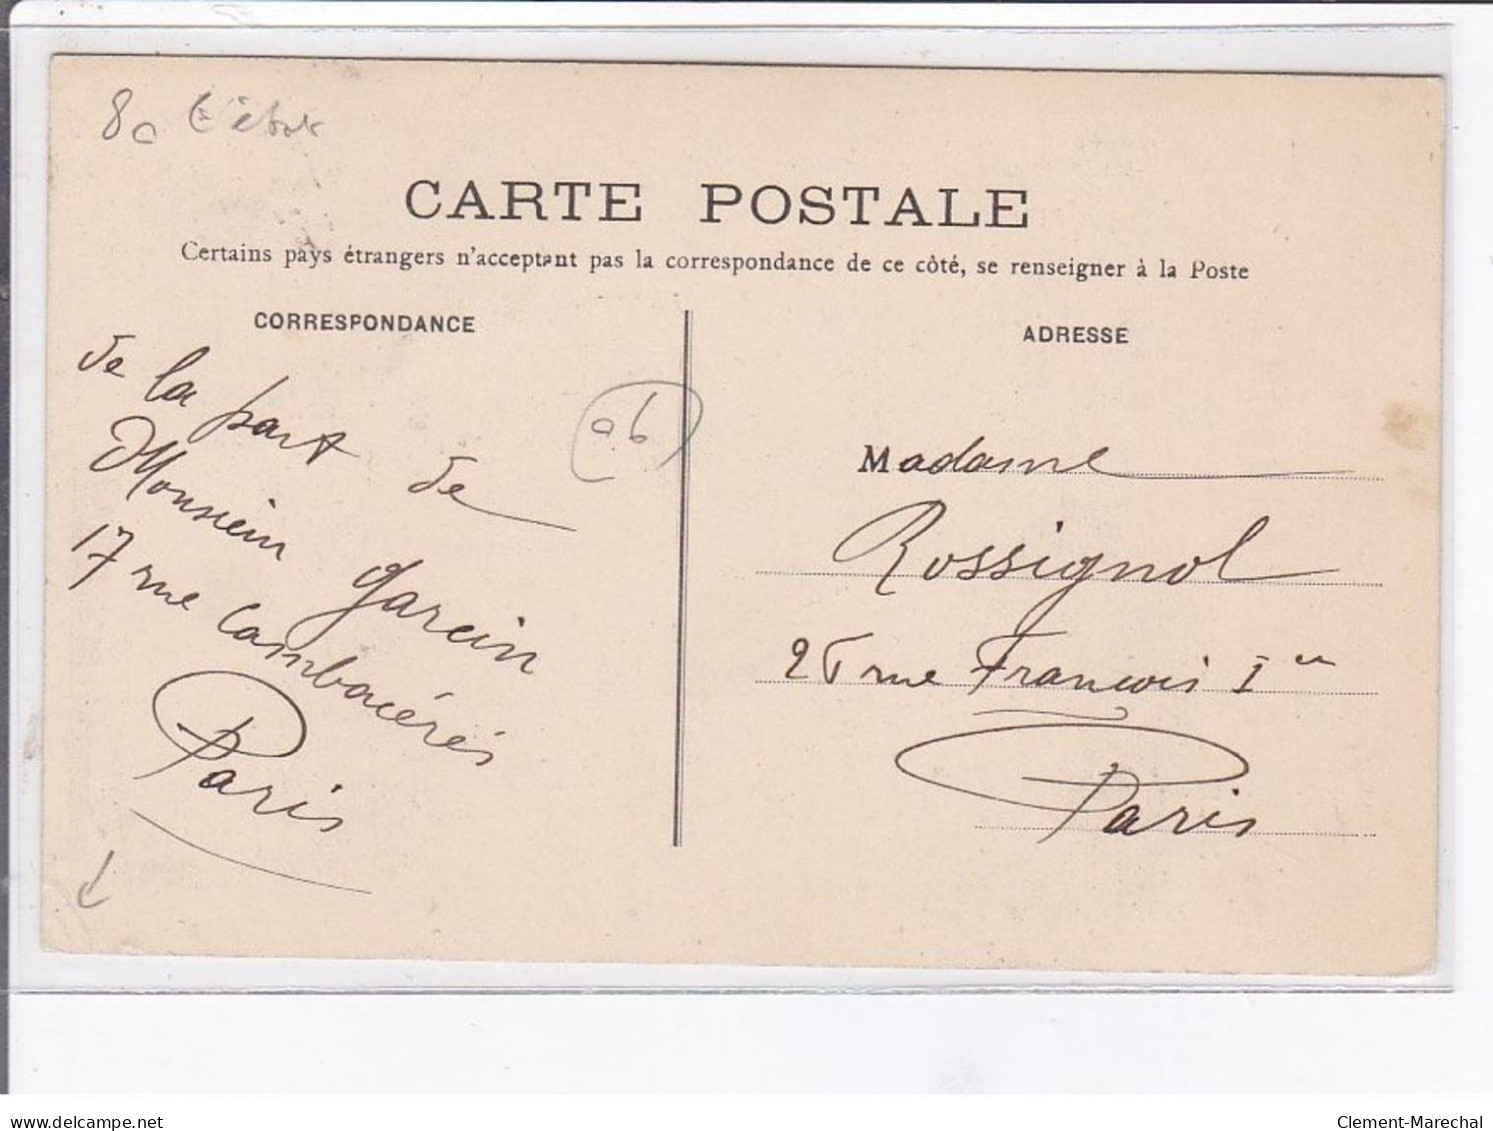 80
CARTE POSTALE
Certains pays étrangers n'acceptant pas la correspondance de ce côté, se renseigner à la Poste
CORRESPONDANCE
de la part de
Monsieur Garcin
17 rue Cambacérès
Paris
ab
ADRESSE
Madame
Rossignol
rue François Ier
Paris
delcampe.net
Clement-Marechal